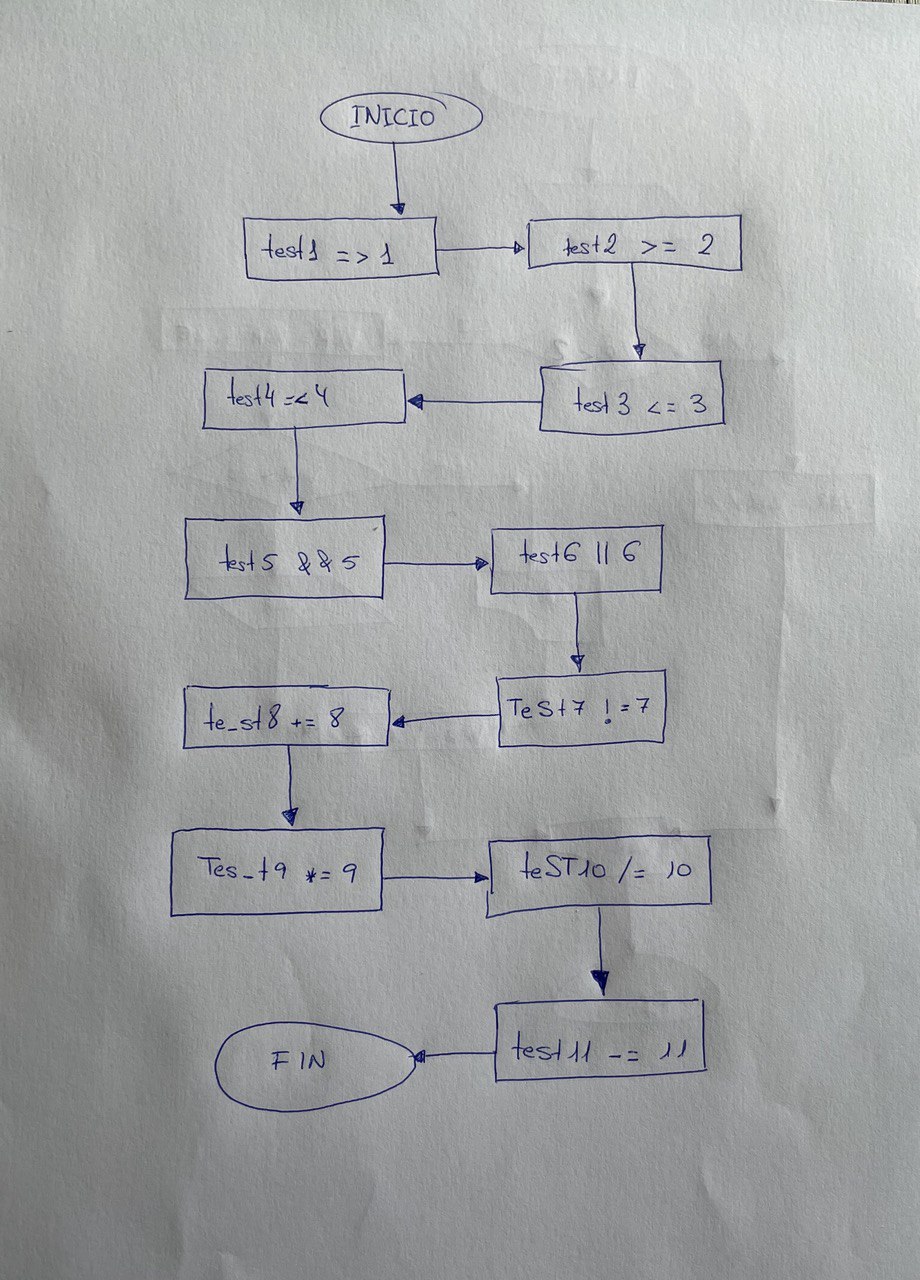 INICIO
test1 => 1
test2 >= 2
test3 <= 3
test4 =< 4
test5 && 5
test6 || 6
TeSt7 != 7
te_st8 += 8
Tes_t9 *= 9
teST10 /= 10
test11 -= 11
FIN